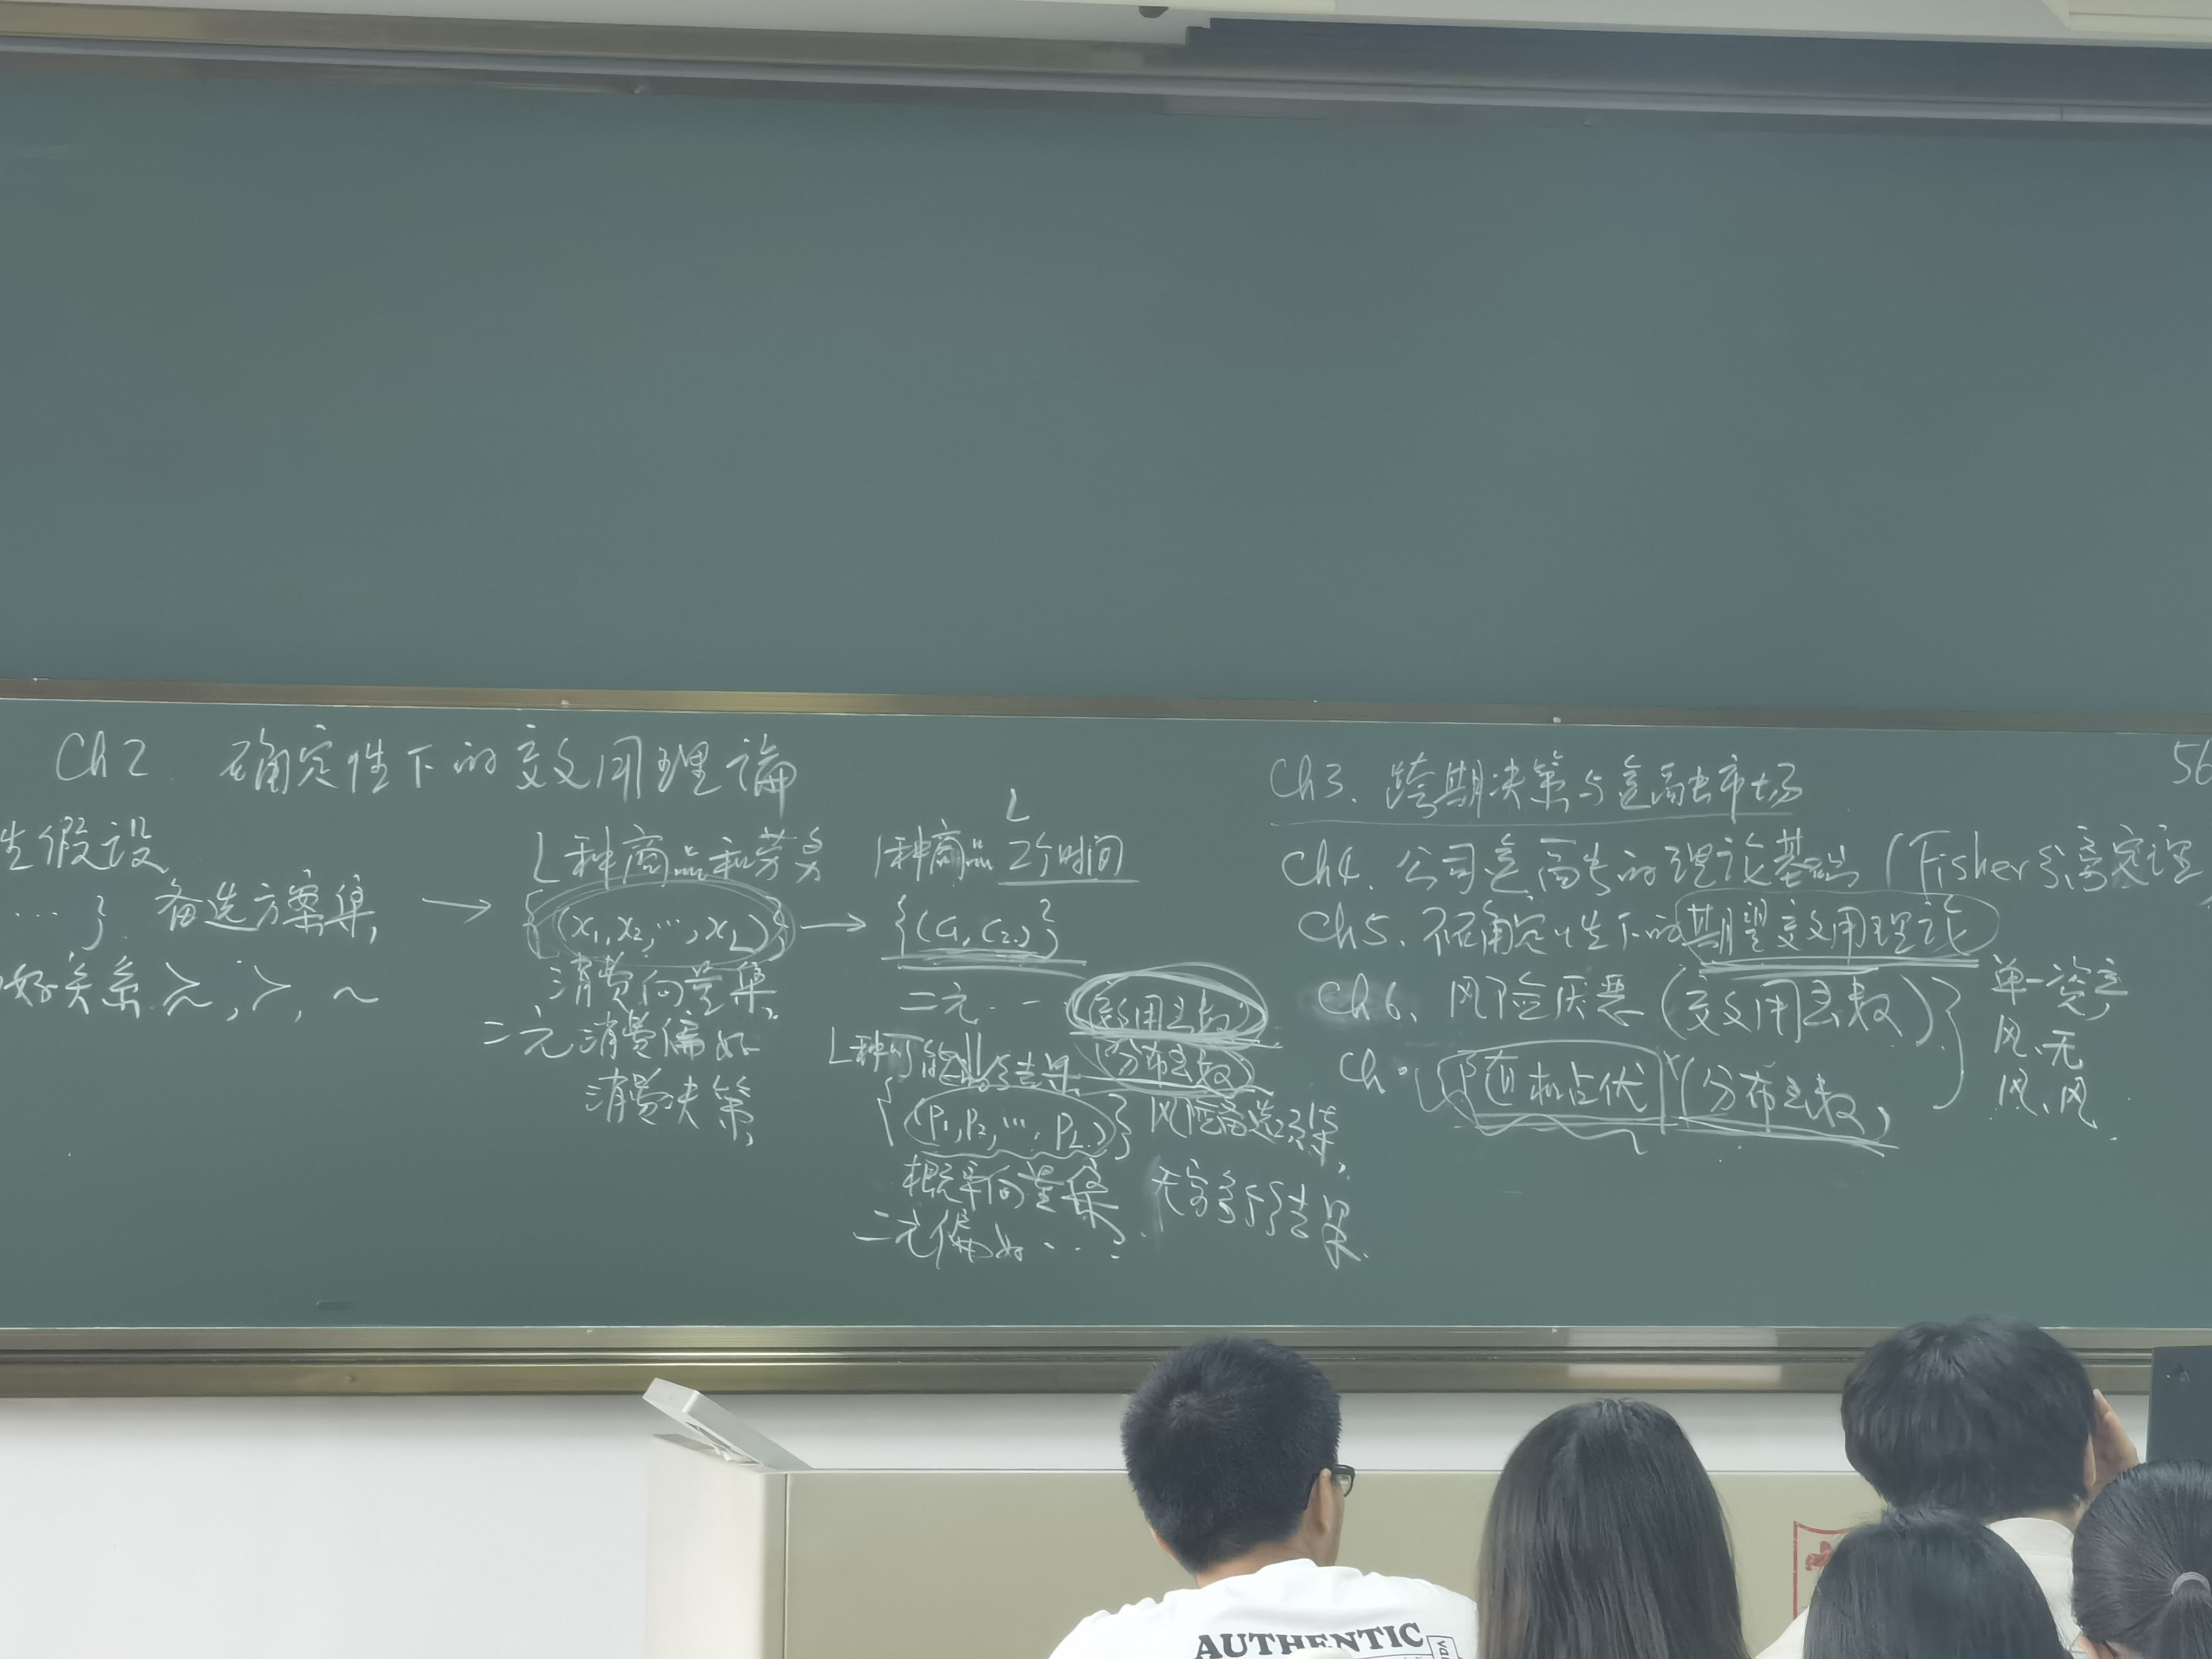 Ch2. 确定性下的效用理論
性假设
…} 备选方案集,
好关系 ≽, ≻, ~
→
L种商品和劳务
{(x₁, x₂, …, x_L)}
消费向量集,
二元消费偏好
消费决策,
→
L
1种商品 2个时间
{(C₁, C₂)}
二元 … 效用函数
L种可能的结果 分布函数
{(P₁, P₂, …, P_L)} 风险备选方案,
概率向量集 无穷多个结果.
二元偏好 …
Ch3. 跨期决策与金融市场
Ch4. 公司金融的理论基础 (Fisher分离定理
Ch5. 不确定性下的期望效用理论
Ch6. 风险厌恶 (效用函数)
Ch. 随机占优 (分布函数)
单一资产
风、无
风、风
56
AUTHENTIC